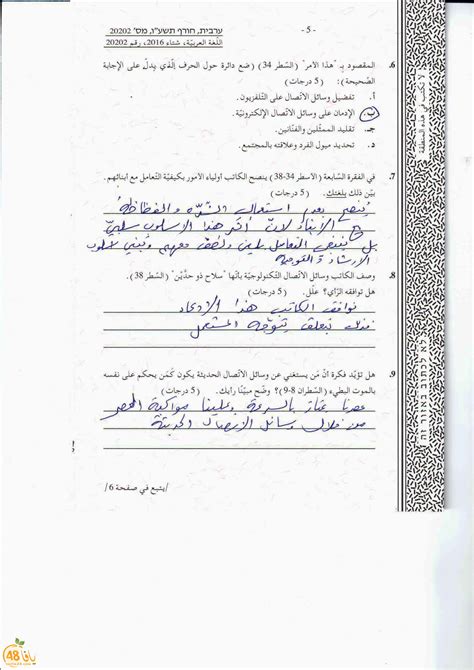 - 5 -
ערבית, חורף תשע"ו, מס' 20202
اللّغة العربيّة، شتاء 2016، رقم 20202
6. المقصود بِـ "هذا الأمر" (السّطر 34) (ضع دائرة حول الحرف الّذي يدلّ على الإجابة
الصّحيحة): (5 درجات)
أ. تفضيل وسائل الاتّصال على التّلفزيون.
ب. الإدمان على وسائل الاتّصال الإلكترونيّة.
جـ. تقليد الممثّلين والفنّانين.
د. تحديد ميول الفرد وعلاقته بالمجتمع.
7. في الفقرة السّابعة (الأسطر 34-38) ينصح الكاتب أولياء الأمور بكيفيّة التّعامل مع أبنائهم.
بيّن ذلك بلغتك. (5 درجات)
يُنصح بعدم استعمال الشدّة والفظاظة
مع الأبناء لأنّ أثر هذا الأسلوب سلبيّ
بل ينبغي التعامل بلين ولطف معهم وتبنّي أسلوب
الإرشاد والتوجيه
8. وصف الكاتب وسائل الاتّصال التّكنولوجيّة بأنّها "سلاح ذو حدّيْن" (السّطر 38).
هل توافقه الرّأي؟ علّل. (5 درجات)
نوافق الكاتب هذا الادعاء
فذلك يتعلق بتوجّه المستعمل
9. هل تؤيّد فكرة أنّ مَن يستغني عن وسائل الاتّصال الحديثة يكون كمَن يحكم على نفسه
بالموت البطيء (السّطران 8-9)؟ وضّح مبيّنًا رأيك. (5 درجات)
عصرنا يمتاز بالسرعة وعلينا مواكبة العصر
من خلال وسائل الاتصال الحديثة
/يتبع في صفحة 6/
لا تكتب في هذه المنطقة
לא לכתוב באזור זה
يافا 48